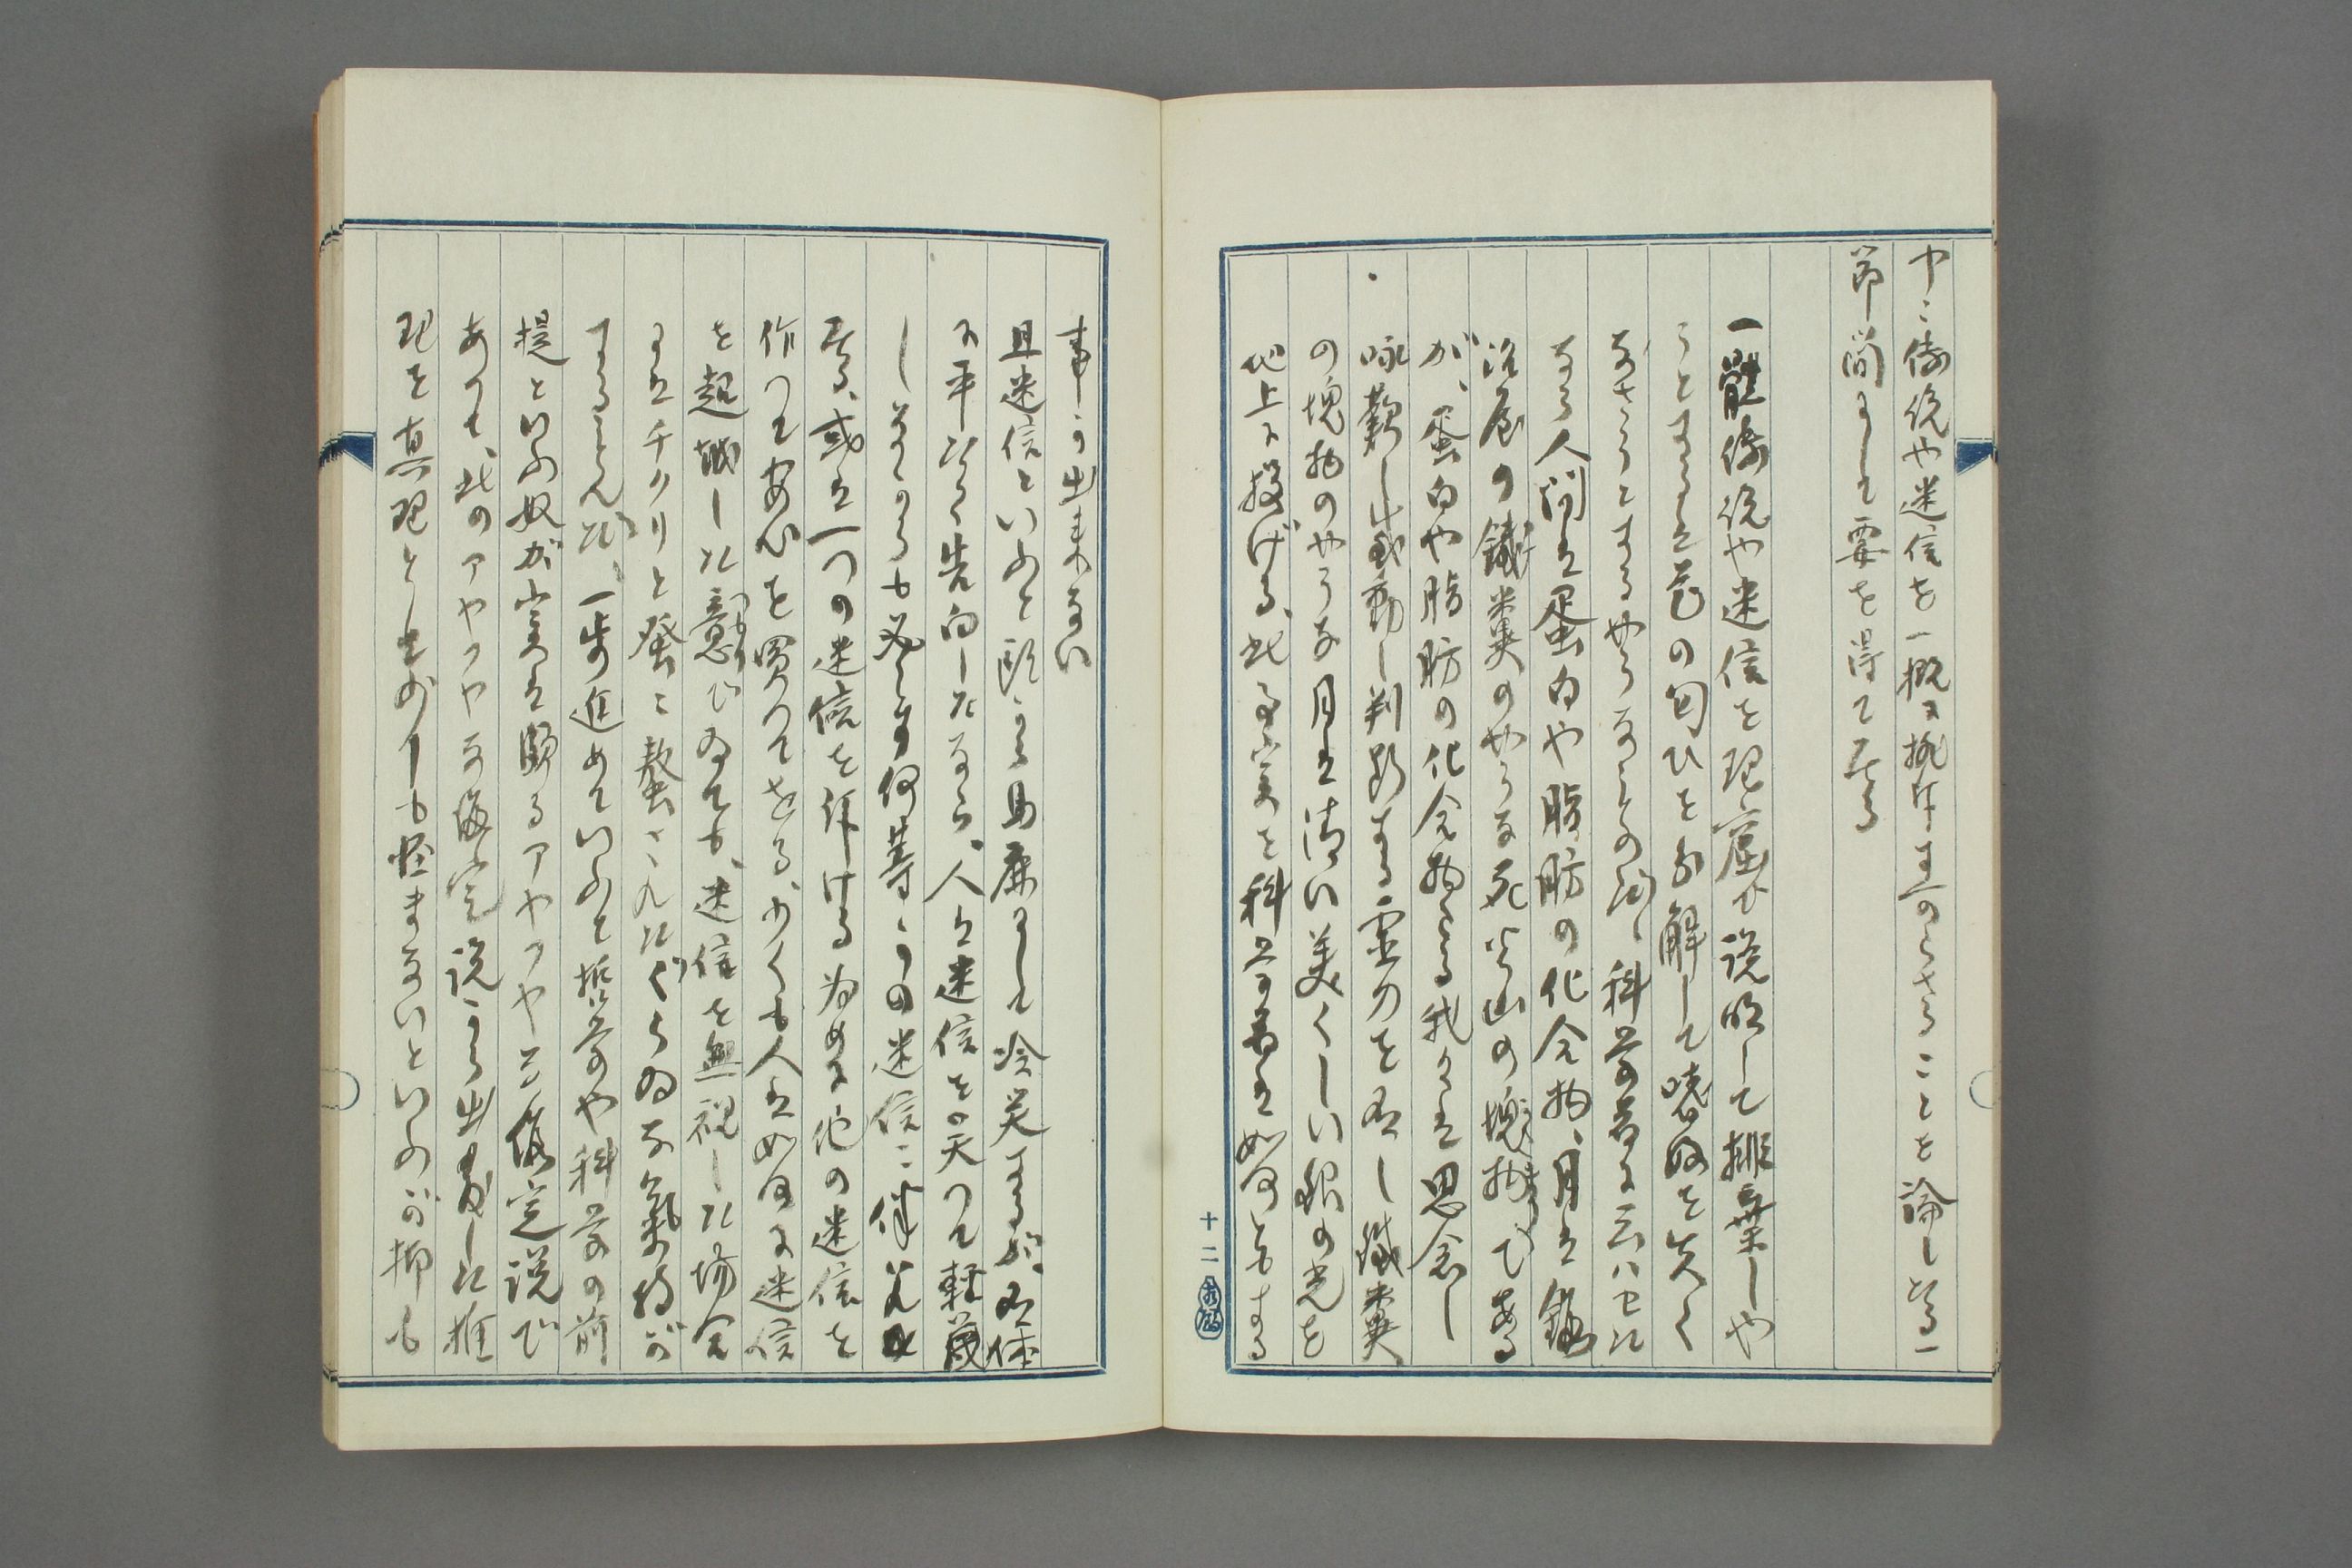 中に傳説や迷信を一概に排斥す可らざることを論じたる一
節簡にして要を得て居る
一體傳説や迷信を理窟で説明して排棄しや
うとするは花の匂ひを分解して嗅がを失く
なさうとするやうなもの、科学者に云ハセれ
ば人間は蛋白や脂肪の化合物、月は鎔
岩の鐵糞のやうな死火山の塊物である
が、蛋白や脂肪の化合物たる我々は思念し
咏歎し感動し判断する霊力を有し鐵糞
の塊物のやうな月は清い美くしい銀の光を
地上に投げる、此事実を科学者は如何ともする
事が出来ない
且迷信といふと頭から馬鹿にして冷笑するが、有体
に平たく告白したなら、人は迷信を以て軽蔑
しながらも必らず何等かの迷信に伴はれて
居る、或は一つの迷信を斥ける為めに他の迷信を
作つて安心を買つてをる、少くも人は如何に迷信
を超越した意でゐても、迷信を無視した場合
にはチクリと螫に螫されたぐらゐな気持が
するもんだ、一歩進めていふと哲学や科学の前
提といふ奴が実は頗るアヤフヤな假定説で
あつて、此のアヤフヤな假定説から出発した推
理を真理としましても怪まないといふのが抑も
十二